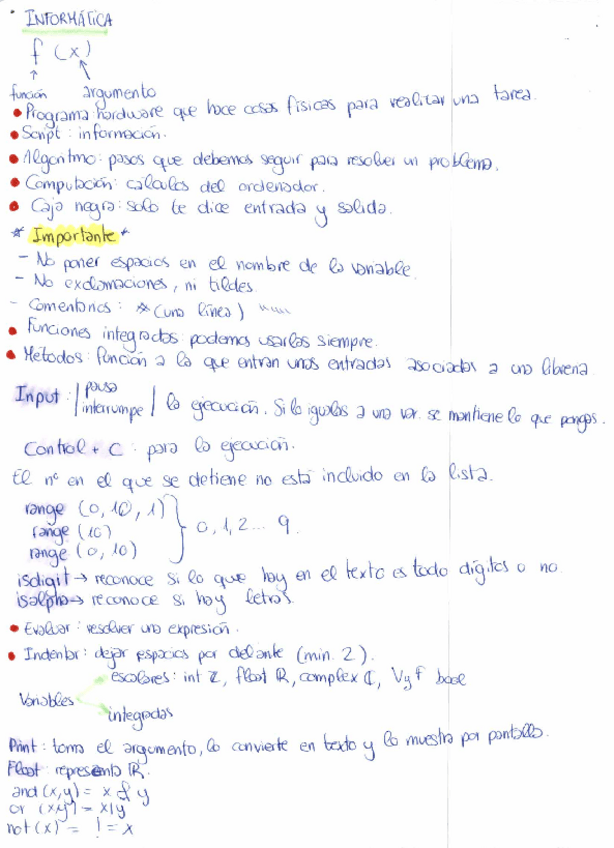 INFORMÁTICA
f (x)
función argumento
• Programa: hardware que hace cosas físicas para realizar una tarea.
• Script: información.
• Algoritmo: pasos que debemos seguir para resolver un problema.
• Computación: cálculos del ordenador.
• Caja negra: solo te dice entrada y salida.
* Importante *
- No poner espacios en el nombre de la variable.
- No exclamaciones, ni tildes.
- Comentarios: * (una línea) """""
• Funciones integradas: podemos usarlas siempre.
• Métodos: función a la que entran unos entradas asociadas a una librería
Input: | pausa
interrumpe | la ejecución. Si lo igualas a una var. se mantiene lo que pongas.
Control + C: para la ejecución.
El nº en el que se detiene no está incluido en la lista.
range (0, 10, 1)
range (10) } 0, 1, 2 ... 9.
range (0, 10)
isdigit → reconoce si lo que hay en el texto es todo dígitos o no
isalpha → reconoce si hay letras.
• Evaluar: resolver una expresión.
• Indentar: dejar espacios por delante (min. 2).
escalares: int ℤ, float ℝ, complex ℂ, V y F bool
Variables
integradas
Print: toma el argumento, lo convierte en texto y lo muestra por pantalla.
Float: representa ℝ.
and (x,y) = x & y
or (x,y) = x|y
not (x) = ! = x